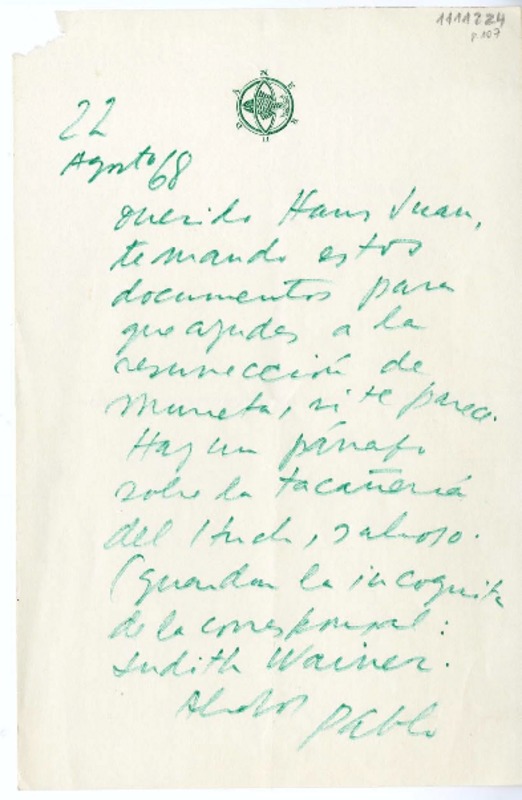 1111224
p. 107
N
E
R
U
D
A
22
Agosto 68
Querido Hans Juan,
te mando estos
documentos para
que ayudes a la
resurrección de
Murieta, si te parece.
Hay un párrafo
sobre la tacañería
del sabroso.
(guardan la incognita
de la corresponsal:
Judith Wainer.
Pablo